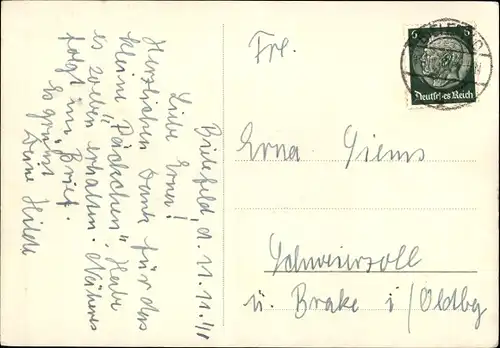 Bielefeld, d. 11. 11. 41
Liebe Erna!
Herzlichen Dank für das
kleine "Päckchen", Habe
es soeben erhalten. Näheres
folgt im Brief.
Es grüßt
Deine Hilde
Frl.
Erna Siems
u. Brake i/Oldbg
BIELEFELD
6 6
Deutsches Reich